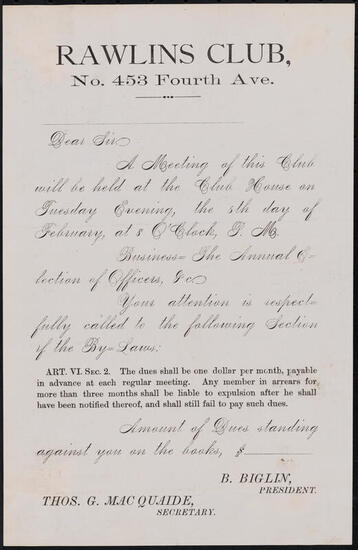 RAWLINS CLUB,
No. 453 Fourth Ave.
Dear Sir
A Meeting of this Club
will be held at the Club House on
Tuesday Evening, the 5th day of
February, at 8 O'Clock, P. M.
Business=The Annual E=
lection of Officers, &c
Your attention is respect=
fully called to the following Section
of the By=Laws:
ART. VI. SEC. 2. The dues shall be one dollar per month, payable
in advance at each regular meeting. Any member in arrears for
more than three months shall be liable to expulsion after he shall
have been notified thereof, and shall still fail to pay such dues.
Amount of Dues standing
against you on the books, $
B. BIGLIN,
PRESIDENT.
THOS. G. MAC QUAIDE,
SECRETARY.